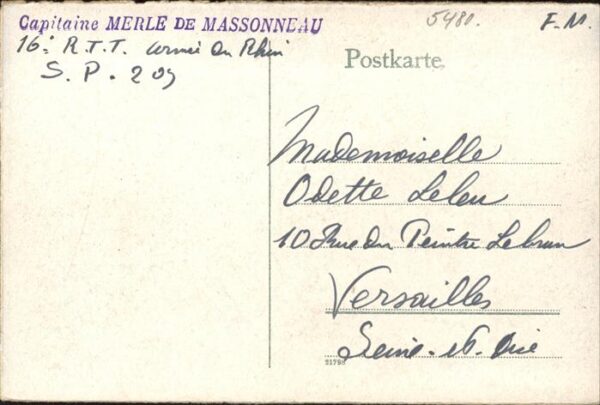 Capitaine MERLE DE MASSONNEAU
16e R.T.T. armée du Rhin
S. P. 209
5480.
F. M.
Postkarte.
Mademoiselle
Odette Leleu
10 Rue du Peintre Lebrun
Versailles
Seine-et-Oise
21798